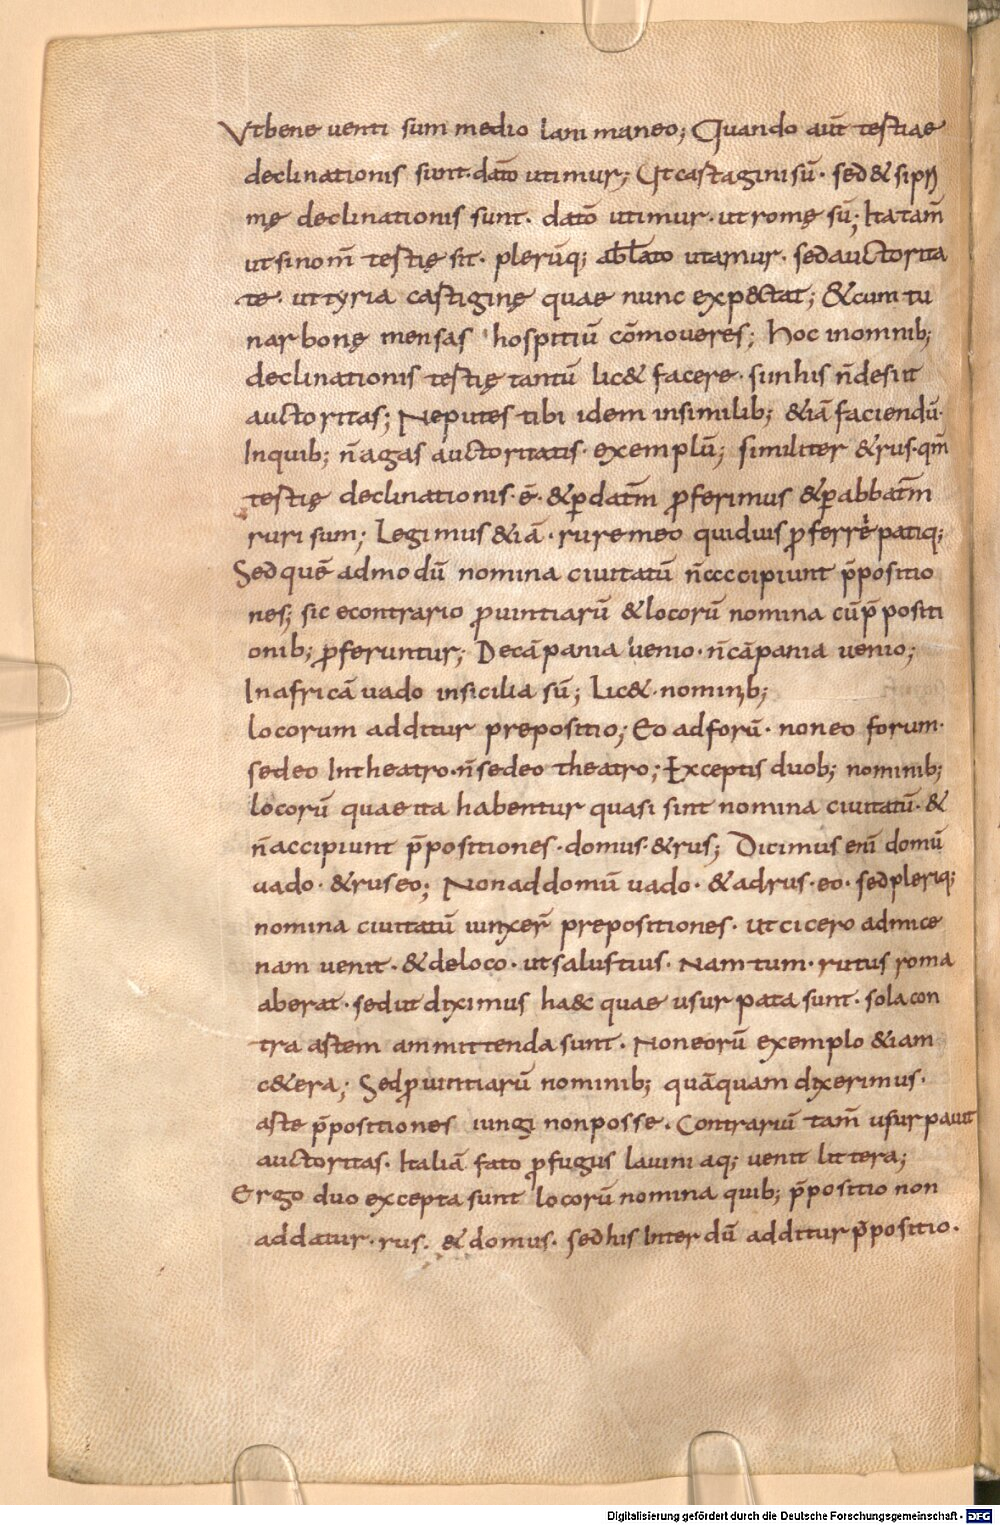 Vt bene uenti sum medio lani maneo; Quando aut̄ testiae
declinationis sunt. dat̄o utimur; Ut castagini sū· sed & si pri
mę declinationis sunt· dat̄o utimur· ut romę sū; Ita tam̄
ut si nom̄ testię sit· plerūq; ablato utamur· sed auctorita
te· ut tyria castiginę quae nunc expectat; & cum tu
narbonę mensas hospitiū cōmoueres; Hoc in omnib;
declinationis testię tantū lic& facere· si in his n̄ desint
auctoritas; Ne putes tibi idem in similib; &iā faciendū·
In quib; n̄ agas auctoritatis· exemplū; similiter & rus· qm̄
testię declinationis· ē· & p̲ datm̄ p̲ferimus & p̲ abbatm̄
ruri sum; Legimus &iā· rure meo quiduis p̲ferre patiq;
Sed quē admodū nomina ciuitatū n̄ cccipiunt p̄positio
nes; sic econtrario p̲uintiarū & locorū nomina cū p̄positi
onib; p̲feruntur; De cāpania uenio· n̄ cāpania uenio;
In africā uado in sicilia sū; Lic&· nominib;
locorum additur prepositio; Eo ad forū· non eo forum·
sedeo In theatro· n̄ sedeo theatro; Exceptis duob; nominib;
locorū quae ita habentur quasi sint nomina ciuitatū· &
n̄ accipiunt p̄positiones· domus· & rus; Dicimus eni̅ domū
uado· & rus eo; Non ad domū uado· & ad rus· eo· sed pleriq;
nomina ciuitatū iunxer̄ prepositiones· ut cicero ad mice
nam uenit· & de loco· ut salustius· Nam tum· rutus roma
aberat· sed ut diximus haec quae usurpata sunt· sola con
tra astem ammittenda sunt· Non eorū exemplo &iam
c&era; Sed p̲uintiarū nominib; quāquam dixerimus·
aste p̄positiones iungi non posse· Contrariū tam̄ usurpauit
auctoritas· Italiā fato p̲fugus lauini aq; uenit littera;
Ergo duo excepta sunt locorū nomina quib; p̄positio non
addatur· rus· & domus· sed his Inter dū additur p̄positio·
Digitalisierung gefördert durch die Deutsche Forschungsgemeinschaft - DFG